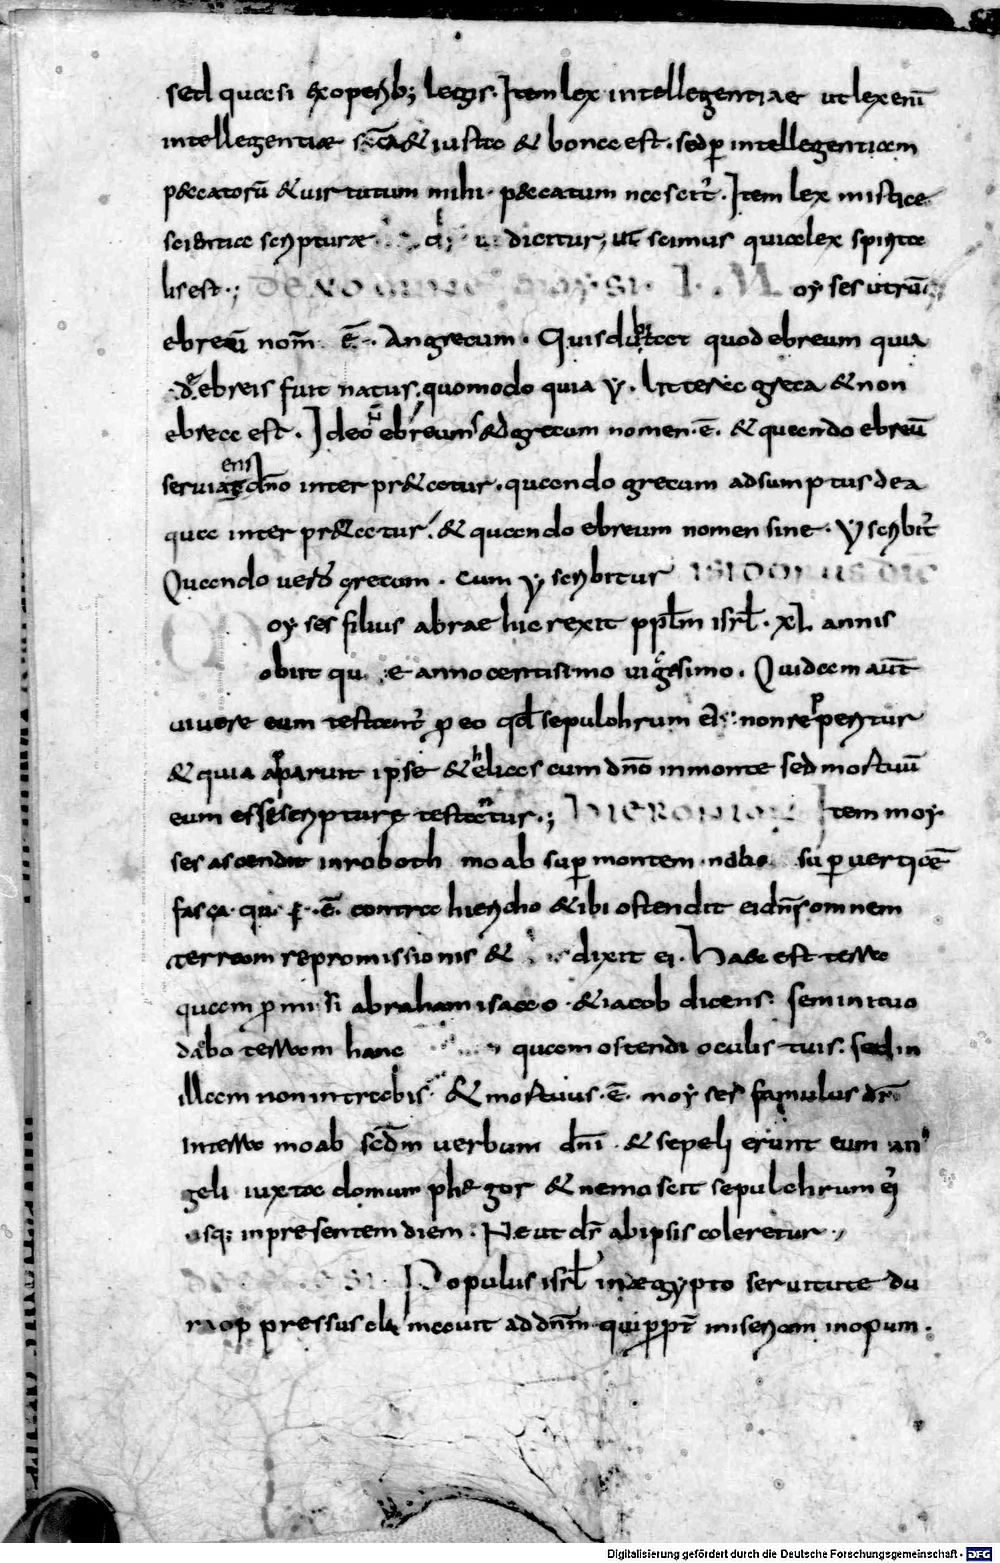 sed quasi ex operib; legis. Item lex intellegentiae ut lex eni̅
intellegentiae sc̅a & iusta & bona est. sed p̲ intellegentiam
peccatoru̅ & uirtutum mihi. peccatum nascit᷑. Item lex mistice
scientiae scripturae dicitur, ut scimus quia lex spirita
lis est.; DE NOMINE MOYSI. I. M oyses utru̅
ebreu̅ nom̅ e̅. An grecum. Quis dubitat quod ebreum quia
de ebreis fuit natus. quomodo quia y. littera greca & non
ebrea est. Ideo ebreum & grecum nomen. e̅. & quando ebreu̅
seruiens dn̅o interpretatur. quando grecum adsumptus de a
qua interpretatur. & quando ebreum nomen sine. y scribit᷑
Quando uero grecum. cum y scribitur ISIDORUS DIC
oyses filius abrae hic rexit ppl̅m isrl̅. XL annis
obiit qu e anno centisimo uigesimo. Quidam aut̅
uiuere eum testant᷑ p̲ eo qd̅ sepulchrum ei non repperitur
& quia apparuit ipse & helias cum dn̅o in monte sed mortuu̅
eum esse scripture testantur.; HIERONIM Item moy
ses ascendit in roboth moab sup̲ montem. nabo sup̲ uertice̅
fasga. qu e̅. contra hiericho & ibi ostendit ei dn̅s omnem
terram repromissionis & dixit ei. Haec est terra
quam p̲misi abraham isaac & iacob dicens: semini tuo
dabo terram hanc quam ostendi oculis tuis: sed in
illam non intrabis. & mortuus. e̅. moyses famulus dn̅i
in terra moab scd̅m uerbum dn̅i. & sepelierunt eum an
geli iuxta domum phegor & nemo scit sepulchrum ei᷑
usq; in presentem diem. Ne ut ds̅ ab ipsis coleretur
Populus isrl̅ in aegypto seruitute du
ra oppressus clamauit ad dn̅m qui p̲pt̅ miseriam inopum.
Digitalisierung gefördert durch die Deutsche Forschungsgemeinschaft - DFG